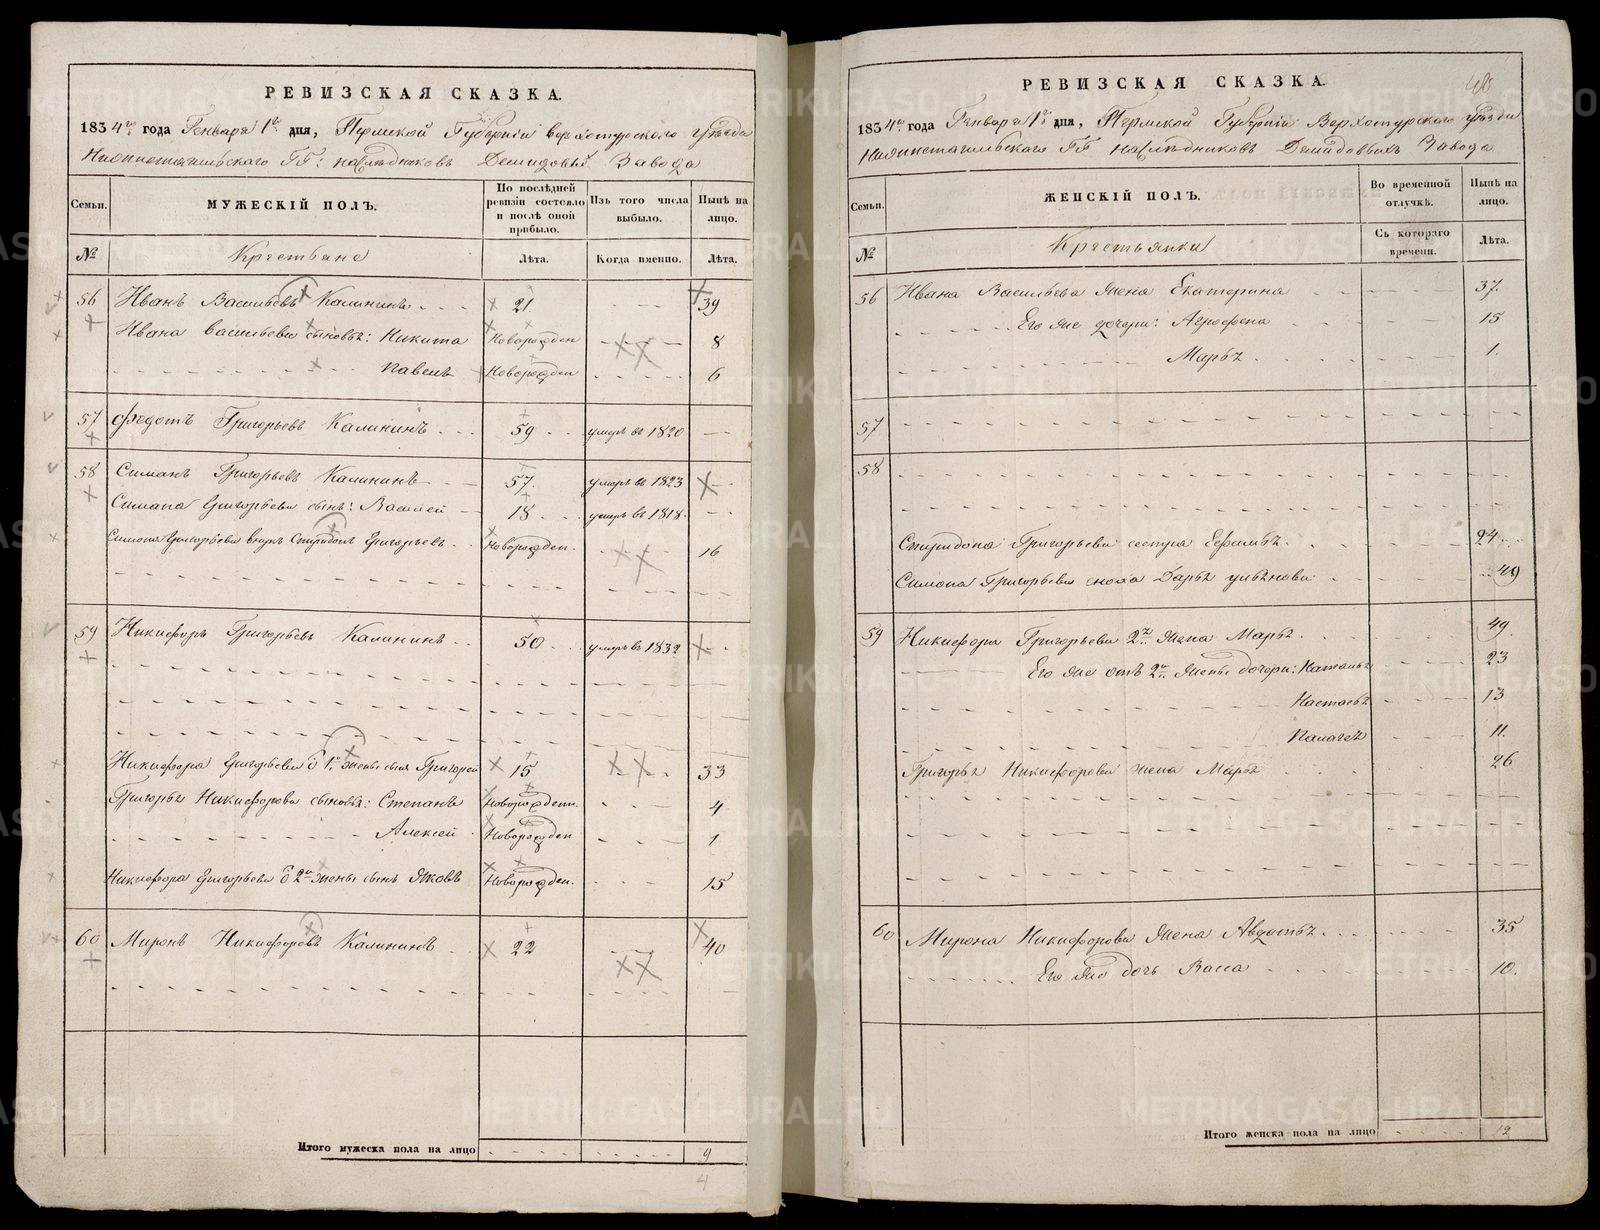 РЕВИЗСКАЯ СКАЗКА.
1834го года Генваря 1го дня, Пермской Губернiи Верхотурскаго уѣзда
Нижнетагильскаго ГГ: наслѣдниковъ Демидовыхъ Завода
Семьи.
МУЖЕСКIЙ ПОЛЪ.
По послѣдней ревизiи состояло и послѣ оной прибыло.
Изъ того числа выбыло.
Нынѣ на лицо.
№
Крестьяне
Лѣта.
Когда именно.
Лѣта.
56 Иванъ Васильевъ Калининъ 21. 39
Ивана Васильева сыновья: Никита Новорожден 8
Павелъ Новорожден 6
57 Федотъ Григорьевъ Калининъ 59 умеръ въ 1820
58 Симанъ Григорьевъ Калининъ 57. умеръ въ 1823
Симана Григорьева сынъ: Василей 18 умеръ въ 1818
Симана Григорьева Спиридонъ Григорьевъ Новорожден. 16
59 Никифоръ Григорьевъ Калининъ 50 умеръ въ 1832
Никифора Григорьева 1й жены сынъ Григорей 15 33
Григорья Никифорова сыновья: Степанъ Новорожден. 4
Алексей Новорожден 1
Никифора Григорьева 2й жены сынъ Яковъ Новорожден. 15
60 Миронъ Никифоровъ Калининъ 22 40
Итого мужеска пола на лицо 9
4
РЕВИЗСКАЯ СКАЗКА.
1834го года Генваря 1го дня, Пермской Губернiи Верхотурскаго уѣзда
Нижнетагильскаго ГГ наслѣдниковъ Демидовыхъ Завода
Семьи.
ЖЕНСКIЙ ПОЛЪ.
Во временной отлучкѣ.
Нынѣ на лицо.
№
Крестьянки
Съ котораго времени.
Лѣта.
56 Ивана Васильева жена Екатерина 37.
Его же дочери: Агрофена 15
Марья 1.
57
58
Спиридона Григорьева сестра 24
Симана Григорьева сноха Дарья 49
59 Никифора Григорьева 2я жена Марья 49.
Его же отъ 2й жены дочери: Наталья 23
Настасья 13
Палагея 11.
Григорья Никифорова жена Марья 26
60 Мирона Никифорова жена Авдотья 35
Его же дочь Васса 10.
Итого женска пола на лицо 12
METRIKI.GASO-URAL.RU